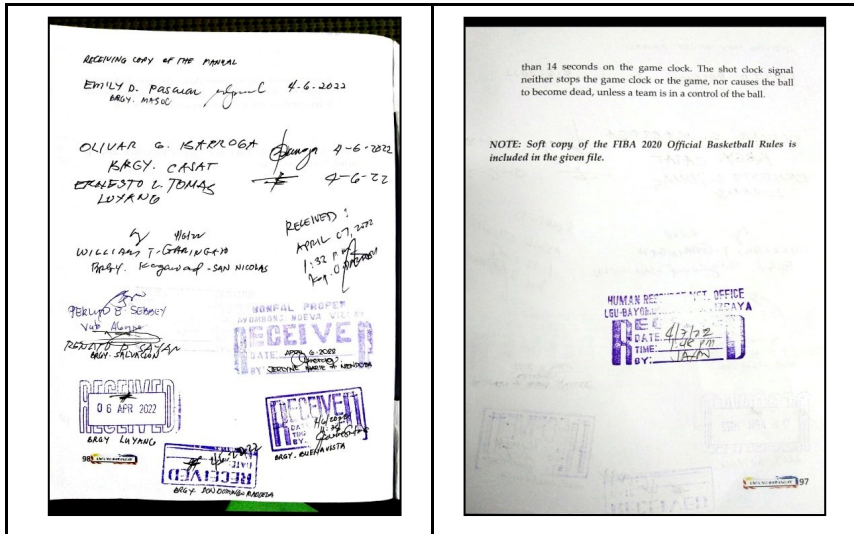 RECEIVING COPY OF THE MANUAL
EMILY D. Pascua 4-6-2022
BRGY. MASOC
OLIVAR G. BARROGA 4-6-2022
BRGY. CASAT
ERNESTO L. TOMAS 4-6-22
LUYANG
4/6/22
WILLIAM T. GARINGAYO
BRGY. Kagawad - SAN NICOLAS
RECEIVED:
APRIL 07, 2022
1:32 P.M.
BRGY. SALVACION
BONFAL PROPER
BAYOMBONG, NUEVA VIZCAYA
RECEIVED
DATE: APRIL 6 - 2022
BY: JEROYNE MARIE MENDOZA
RECEIVED
06 APR 2022
BRGY LUYANG
RECEIVED
DATE
TIME
BY:
BRGY. BUENAVISTA
RECEIVED
DATE
BRGY. DON DOMINGO MADDELA
98
than 14 seconds on the game clock. The shot clock signal
neither stops the game clock or the game, nor causes the ball
to become dead, unless a team is in a control of the ball.
NOTE: Soft copy of the FIBA 2020 Official Basketball Rules is
included in the given file.
HUMAN RESOURCE MGT. OFFICE
RECEIVED
DATE 4/7/22
TIME: 1:48 PM
BY:
97